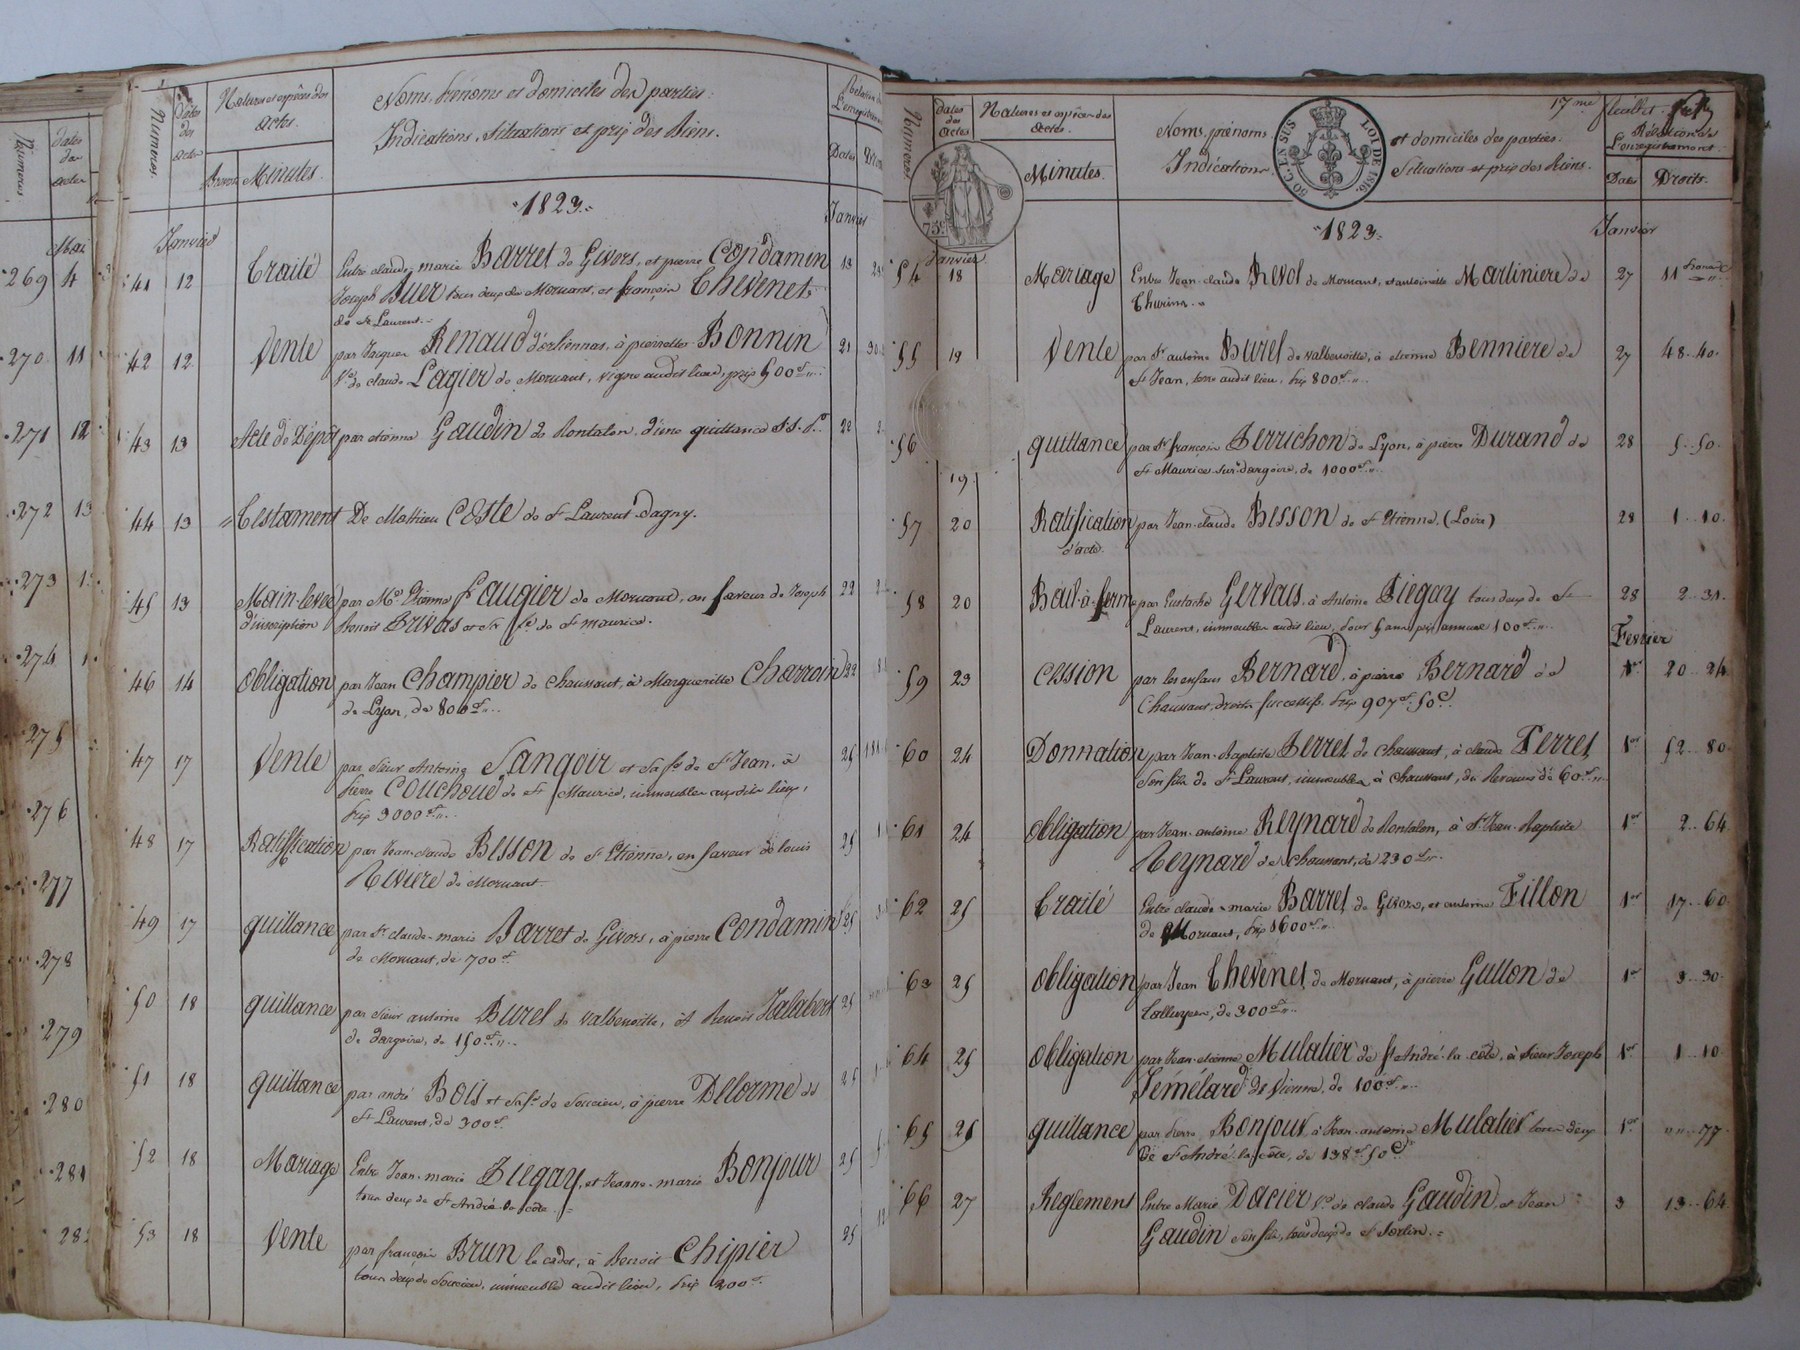 Numeros
dates
des
actes
Mai
269 4
270 11
271 12
272 13
273
274
275
276
277
278
279
280
281
Numeros
Dates
des
actes
Natures et espèces des
actes.
Minutes.
Noms, prénoms et domiciles des parties.
Indications, situations et prix des Biens.
Dates
1823
Janvier
Janvier
41 12 Traité Entre claude marie Barret de Givors, et pierre Condamin 13
Joseph Buer tous deux de Mornant, et françois Thevenet
de St Laurent.
42 12 Vente par Jacques Renaud d'orliennas, à pierrette Bonnin 21
Ve. de claude Lagier de Mornant, vigne audit lieu, prix 500f.
43 13 Acte de Dépôt par etienne Gaudin de Rontalon, d'une quittance S.S. P. 22
44 13 Testament De Mathieu Coste de St Laurent-dagny.
45 13 Main-levée par Me. Etienne Laugier de Mornant, en faveur de Joseph 22
d'inscription Benoit Privas et sa fe. de St maurice.
46 14 Obligation par Jean Champier de Chaussant, à Marguerite Charroin 22
de Lyon, de 800f.
47 17 Vente par Sieur Antoine Sangoir et sa fe. de St Jean, à 25
Pierre Couchoud de St Maurice, immeubles audit lieu,
prix 3000f.
48 17 Ratiffication par Jean-claude Bisson de St Etienne, en faveur de louis 25
Riviere de Mornant
49 17 quittance par Sr. claude-marie Barret de Givors, à pierre Condamin 25
de Mornant, de 700f.
50 18 quittance par sieur antoine Burel de valbenoitte, à Benoit Jalabert 25
de dargoire, de 150f.
51 18 quittance par andré Bois et sa fe. de Soucieu, à pierre Delorme de 25
St Laurent, de 300f.
52 18 Mariage Entre Jean-marie Piegay, et Jeanne-marie Bonjour 25
tous deux de St André-la-côte.
53 18 Vente par françois Brun le cadet, à Benoit Chipier 25
tous deux de Soucieu, immeuble audit lieu, prix 200f.
Numeros
dates
des
actes
Natures et espèces des
actes.
Minutes.
75c.
17me feuillet.
Noms, prénoms
Indications
50 C. EN SUS
LOI DE 1816.
et domiciles des parties.
Situations et prix des Biens.
Relation de
L'enregistrement.
Dates Droits.
1823
Janvier
Janvier
54 18 Mariage Entre Jean-claude Revol de Mornant, et antoinette Martiniere de 27 11
Thurins.
55 19 Vente par Sr. antoine Burel de valbenoitte, à etienne Benniere de 27 48..40.
St Jean, terre audit lieu, prix 800f.
56 19 quittance par Sr. françois Perrichon de Lyon, à pierre Durand de 28 5..50.
St Maurice-sur-dargoire, de 1000f.
57 20 Ratification par Jean-claude Bisson de St Etienne. (Loire) 28 1..10.
d'acte.
58 20 Bail-à-ferme par Eustache Gervais, à Antoine Piegay tous deux de St 28 2..31.
Laurent, immeubles audit lieu, pour 5 ans prix annuel 100f.
Fevrier
59 23 Cession par les enfans Bernard, à pierre Bernard de 1er 20..24.
Chaussant, droits successifs, prix 907f. 50c.
60 24 Donnation par Jean-Baptiste Ferret, de chaussant, à claude Ferret, 1er 52..80.
son fils de St Laurent, immeubles à chaussant, du Revenu de 60f.
61 24 Obligation par Jean-antoine Reynard de Rontalon, à Sr. Jean-Baptiste 1er 2..64.
Reynard de chaussant, de 230f.
62 25 Traité Entre claude-marie Barret, de Givors, et antoine Fillon 1er 17..60.
de Mornant, prix 1600f.
63 25 Obligation par Jean Thevenet, de Mornant, à pierre Gutton de 1er 3..30.
Talluyers, de 300f.
64 25 Obligation par Jean-etienne Mulatier de St André-la-côte, à Sieur Joseph 1er 1..10.
Femélard de Vienne, de 100f.
65 25 quittance par Pierre Bonjour, à Jean-antoine Mulatier tous deux 1er 77.
de St André-la-côte, de 138f. 50c.
66 27 Reglement Entre Marie Dacier, Ve. de claude Gaudin, et Jean 3 13..64.
Gaudin son fils, tous deux de St Sorlin.